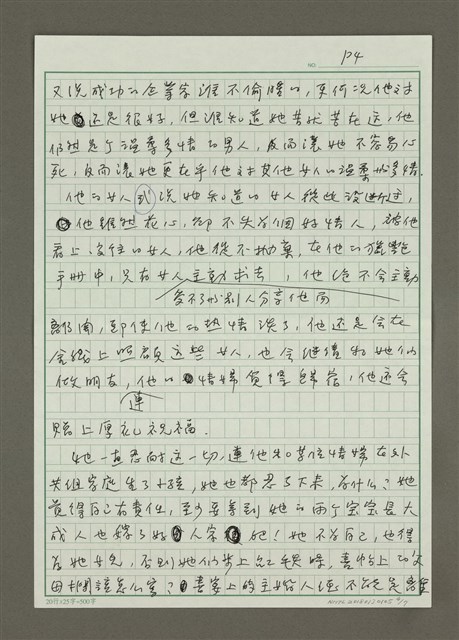 P4
又說成功的企業家誰不偷腥的，更何況他對
她還是很好，但誰知道她苦就苦在這，他
仍然是个溫柔多情的男人，反而讓她不容易心
死，反而讓她更在乎他对其他女人的溫柔或多情.
他的女人 或說她知道的女人從此沒斷过，
他雖然花心，卻不失為個好情人，被他
看上没往的女人，他從不拋棄，在他的獵艷
手冊中，只有女人主動求去，他絕不会主動
受不了與別人分享他而
離開，即使他的热情淡了，他還是会在
金錢上照顧这些女人，也会继續和她們
做朋友，他的情婦負擔嫁，他还会
連
贈上厚礼祝福.
她一直忍耐这一切，連他和某位情婦在外
共組家庭生了小孩，她也都忍了下來，為什么？她
覺得自己有責任，至少要等到她的两个宝宝長大
成人也嫁了好人家吧！她不為自己，也得
為她女兒，否則她們步上紅毯，喜帖上的父
母欄該怎么寫？喜宴上的主婚人还不能是
20行×25字=500字